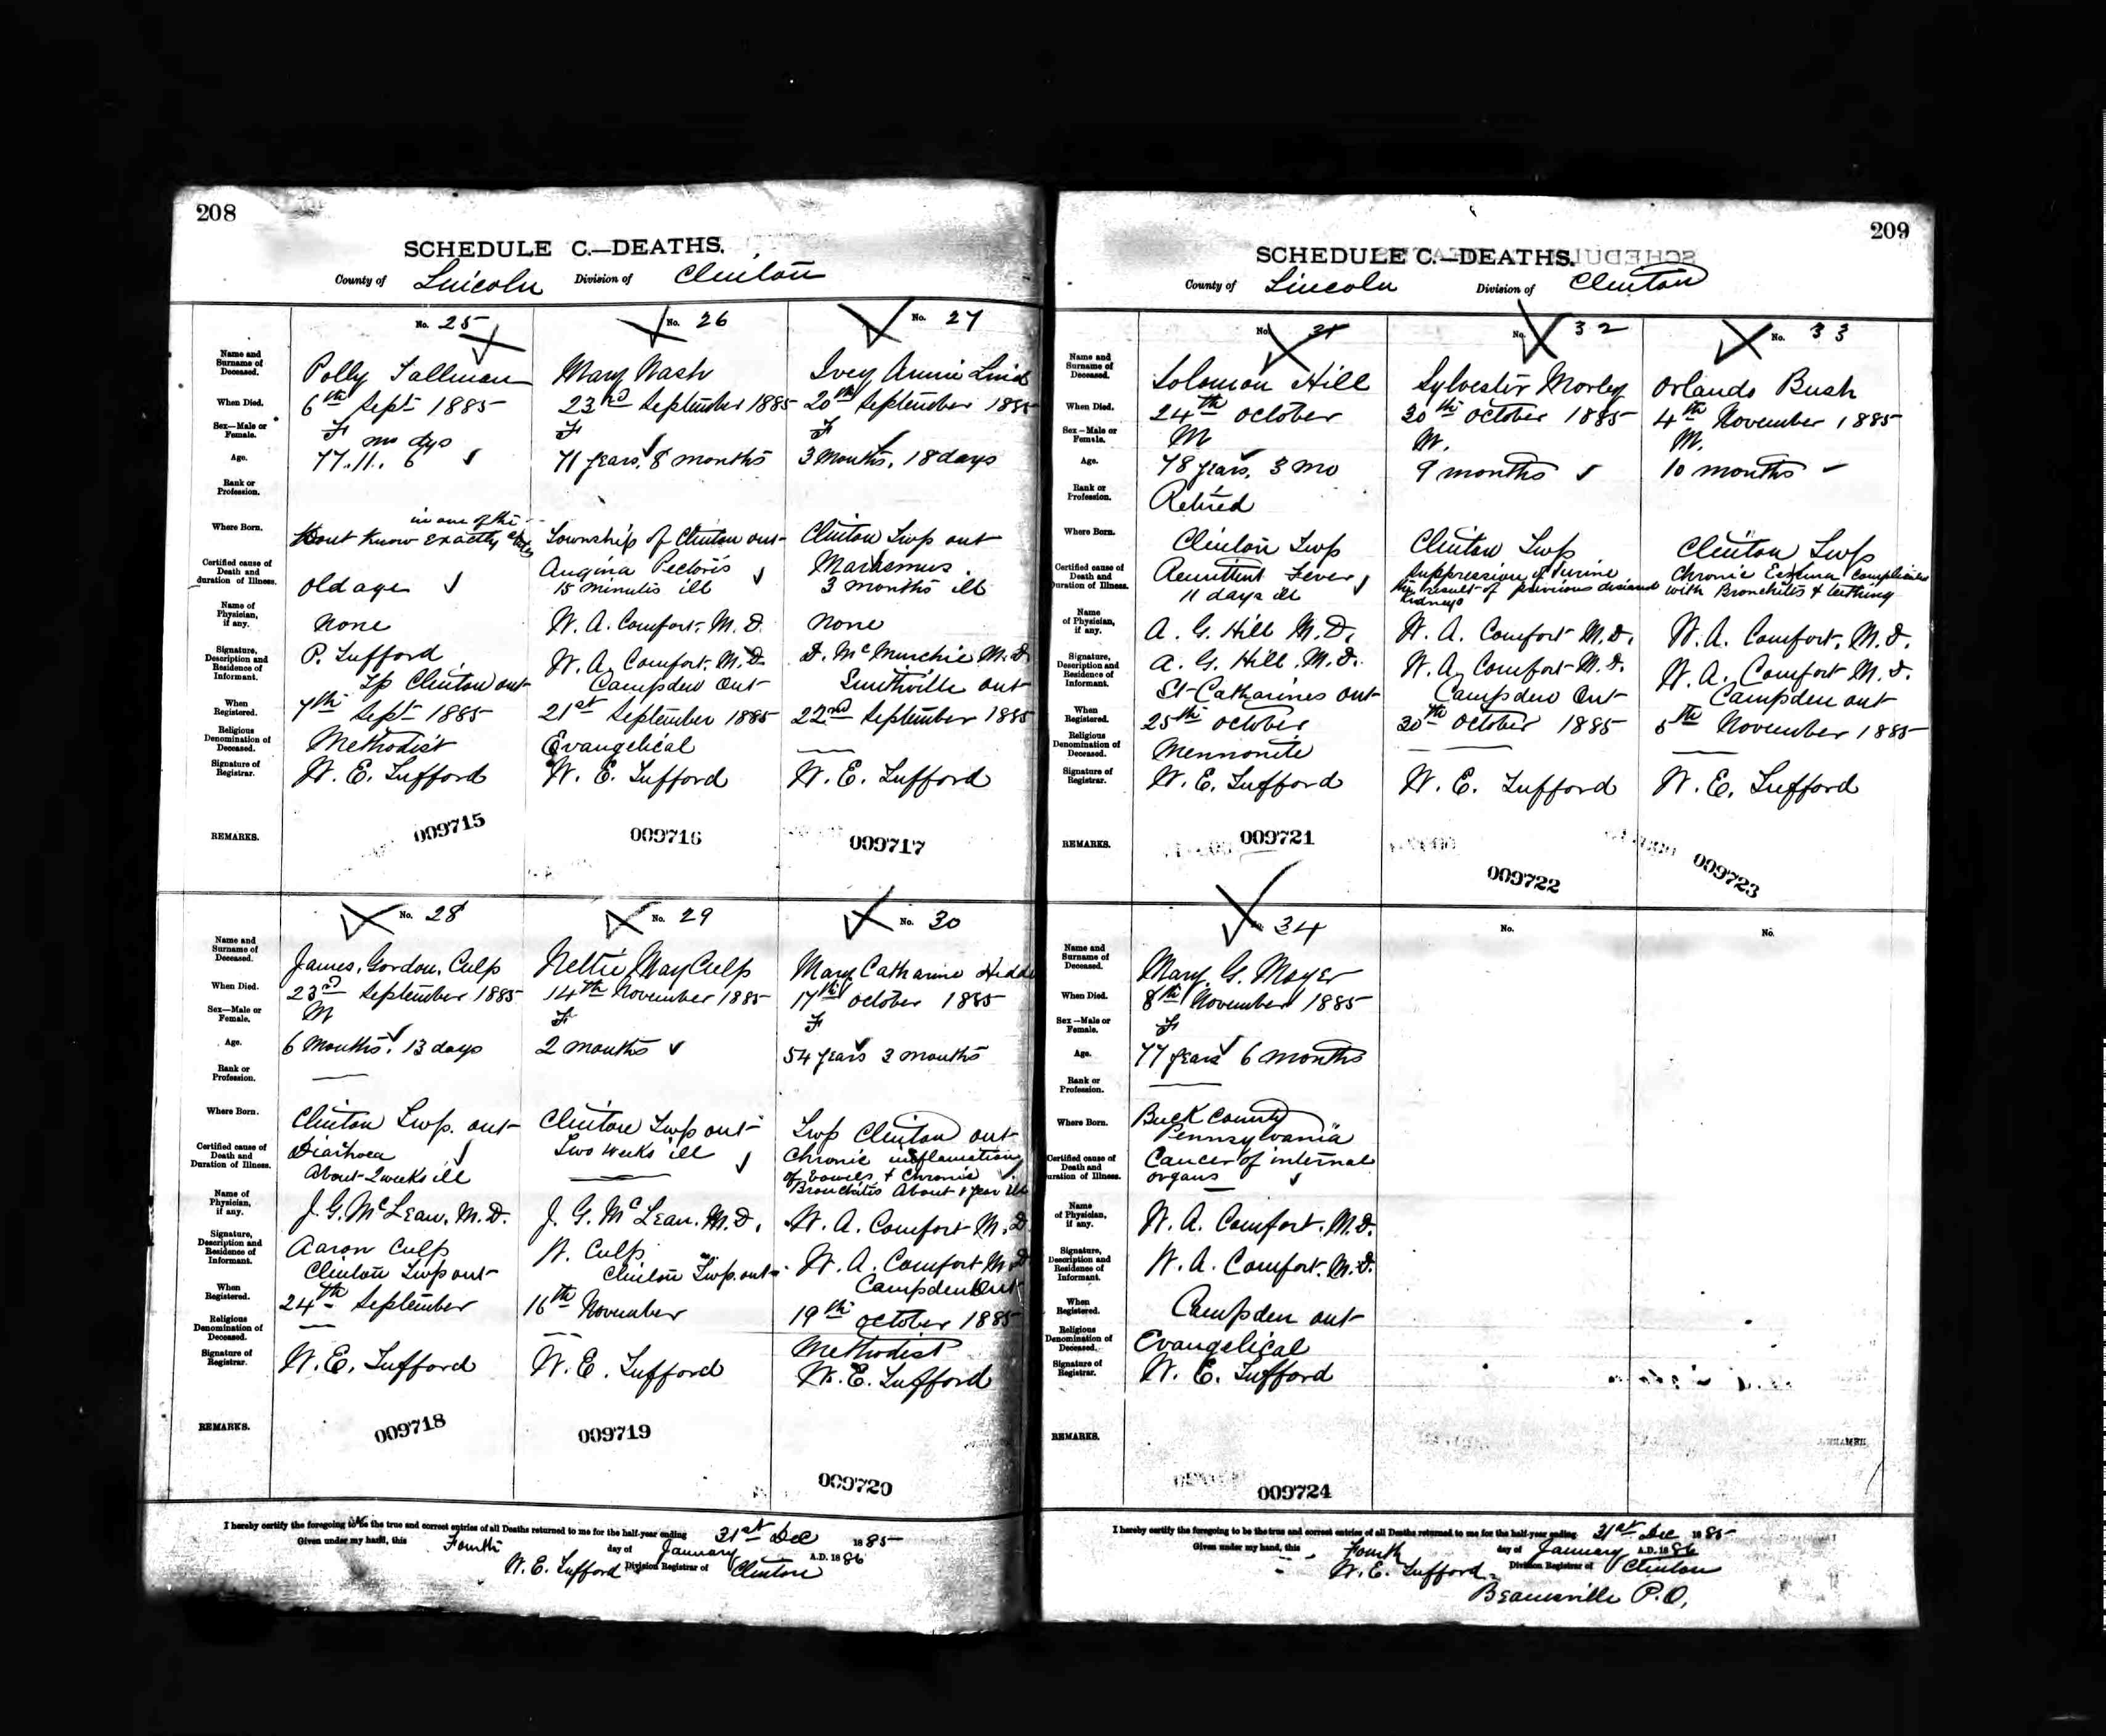 208
SCHEDULE C.—DEATHS.
County of Lincoln Division of Clinton
No. 25
No. 26
No. 27
Name and Surname of Deceased.
Polly Tallman
Mary Nash
Ivey Annie
When Died.
6th Sept 1885
23rd September 1885
20th September 1885
Sex—Male or Female.
F
F
F
Age.
mo dys
77. 11. 6
71 years, 8 months
3 Months, 18 days
Rank or Profession.
Where Born.
in one of the
Dont Know exactly
Township of Clinton ont
Clinton Twp ont
Certified cause of Death and duration of Illness.
old age
Angina Pectoris
15 minutes ill
Marasmus.
3 months ill
Name of Physician, if any.
None
W. A. Comfort, M. D.
None
Signature, Description and Residence of Informant.
P. Tufford
Tp Clinton ont
W. A. Comfort. M. D.
Campden Ont
D. McMurchie M. D.
Smithville ont
When Registered.
7th Sept 1885
21st September 1885
22nd September 1885
Religious Denomination of Deceased.
Methodist
Evangelical
—
Signature of Registrar.
W. E. Tufford
W. E. Tufford
W. E. Tufford
REMARKS.
009715
009716
009717
No. 28
No. 29
No. 30
Name and Surname of Deceased.
James, Gordon, Culp
Nettie May Culp
Mary Catharine
When Died.
23rd September 1885
14th November 1885
17th October 1885
Sex—Male or Female.
M
F
F
Age.
6 Months, 13 days
2 months
54 years 3 months
Rank or Profession.
—
Where Born.
Clinton Twp. ont
Clinton Twp ont
Twp Clinton ont
Certified cause of Death and Duration of Illness.
Diarhoea
About 2 weeks ill
Two weeks ill
—
Chronic inflamation
of bowels, & Chronic
Bronchitis About 1 year ill
Name of Physician, if any.
J. G. McLean, M. D.
J. G. McLean. M. D.
W. A. Comfort M. D
Signature, Description and Residence of Informant.
Aaron Culp
Clinton Twp ont
W. Culp
Clinton Twp. ont
W. A. Comfort M. D
Campden Ont
When Registered.
24th September
16th November
19th October 1885
Religious Denomination of Deceased.
—
—
Methodist
Signature of Registrar.
W. E. Tufford
W. E. Tufford
W. E. Tufford
REMARKS.
009718
009719
009720
I hereby certify the foregoing to be the true and correct entries of all Deaths returned to me for the half-year ending 31st Dec 1885
Given under my hand, this Fourth day of January A.D. 1886
W. E. Tufford Division Registrar of Clinton
209
SCHEDULE C.—DEATHS.
County of Lincoln Division of Clinton
No. 31
No. 32
No. 33
Name and Surname of Deceased.
Solomon Hill
Sylvester Morley
Orlando Bush
When Died.
24th October
30th October 1885
4th November 1885
Sex—Male or Female.
M
M.
M.
Age.
78 years, 3 mo
9 months
10 months
Rank or Profession.
Retired
Where Born.
Clinton Twp
Clinton Twp
Clinton Twp
Certified cause of Death and Duration of Illness.
Remittent Fever
11 days ill
Suppression of Urine
the result of previous diseased
Kidneys
Chronic Eczema complicated
with Bronchitis & teething
Name of Physician, if any.
A. G. Hill M. D.
W. A. Comfort M. D.
W. A. Comfort, M. D.
Signature, Description and Residence of Informant.
A. G. Hill. M. D.
St Catharines ont
W. A. Comfort M. D.
Campden Ont
W. A. Comfort M. D.
Campden ont
When Registered.
25th October
30th October 1885
5th November 1885
Religious Denomination of Deceased.
Mennonite
—
—
Signature of Registrar.
W. E. Tufford
W. E. Tufford
W. E. Tufford
REMARKS.
009721
009722
009723
34
No.
No.
Name and Surname of Deceased.
Mary. G. Moyer
When Died.
8th November 1885
Sex—Male or Female.
F
Age.
77 years 6 months
Rank or Profession.
—
Where Born.
Buck County
Pennsylvania
Certified cause of Death and Duration of Illness.
Cancer of internal
organs
Name of Physician, if any.
W. A. Comfort. M. D.
Signature, Description and Residence of Informant.
W. A. Comfort. M. D.
When Registered.
Campden ont
Religious Denomination of Deceased.
Evangelical
Signature of Registrar.
W. E. Tufford
REMARKS.
009724
I hereby certify the foregoing to be the true and correct entries of all Deaths returned to me for the half-year ending 31st Dec 1885
Given under my hand, this Fourth day of January A.D. 1886
W. E. Tufford Division Registrar of Clinton
Beamsville P.O.